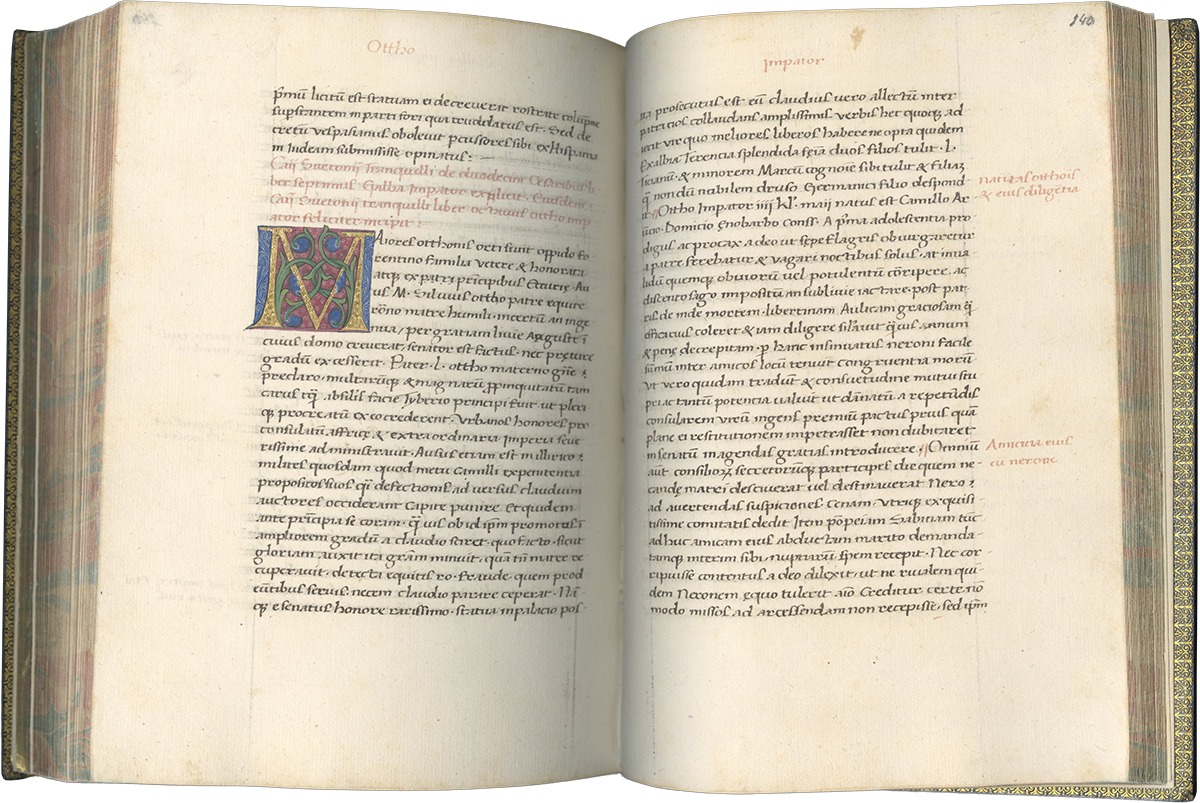 Ottho
p̄mū licitū est statuam ei decreverat rostrate colūpne
supstantem in parti fori qua trucidatus est. Sed de
cretū vespasianus obolevit pcussores sibi ex Hispania
in Iudeam submisisse opinatus:
Caii Suetonii Tranquilli de duodecim Cesaribus li
ber septimus Galba Impator explicit. Eiusdem
Caii Suetonii tranquilli liber octavus ottho imp
ator feliciter incipit:
MAiores otthonis orti sunt oppido fe
rentino familia vetere & honorata
atq; ex patri p̄ncipibus Etrurie Au
us M. Silvius ottho patre equite
ro᷑no matre humili incertū an inge
nua, per gratiam livie Auguste ī
cuius domo creverat, senator est factus. nec preture
gradū excesserit. Pater. L. ottho materno gn̄e
preclaro. multarūq; & magnarū ppinquitatū tam
carus tq̄ absilis facie Tyberio principi fuit. ut pleri
q; procreatū ex eo crederent. Urbanos honores
consulatū affrice & extraordinaria Imperia seve
rissime administravit. Ausus etiam est in illirico
milites quosdam quod metu Camilli expenitentia
propositos suos q̄ defectionis ad versus claudium
auctores occiderant Capite punire Et quidem
ante p̄ncipia se coram. q̄ vis ob id ip̄m promotus ī
ampliorem gradū a claudio sciret. quo facto. sicut
gloriam auxit ita grām minuit. quā tn̄ mature re
cuperavit. detecta equitis ro. fraude. quem prod
eūtibus servis. necem claudio parare ceperat. Nā
q; e senatus honore rarissimo. statua in palacio pos
140
Impator
ita prosecutus est eū claudius vero allectū inter
patricios collaudans amplissimis verbis hec quoq; ad
iecit vir quo meliores liberos habere ne opta quidem
Ex albia Terencia splendida feīa duos filios tulit. L.
Ticianū. & minorem Marcū cognoīe sibi tulit & filiaz
q̄ nondū nubilem druso Germanici filio despond
it. Ottho Impator iiii kl'. maii natus est Camillo Ar
ūcio. Domicio Enobarbo Conss. A p̄ma adolescentia pro
digus ac procax a deo ut sepe flagris obiurgaretur
a patre ferebatur & vagari noctibus solus. at inva
lidū quemq; obviorū vel potulentū coripere, ac
discento sago impositū in sublivie iactare. post pat
ris de inde mortem. libertinam Aulicam graciosam q̄
efficatius coleret & iam diligere silavit q̄ius anum
& pene decrepitam. p hanc insinuatus neroni facile
sūmū inter amicos locū tenuit congruentia morū
ut vero quidam tradūt & consuetudine mutui stu
pri ac tantū potencia valuit ut dānatū a repetūdis
consularem virū ingens premiū pactus prius quā
plane ei restitutionem impetrasset non dubitaret
in senatū in agendas gratias introducere. Omniū
aūt consilioꝝ secretorūq; particeps die quem ne
cande matri desciverat vel destinaverat Nero
ad avertendas suspiciones Cenam. utriq; exquisi
tissime comitatis dedit Item pōpeiam Sabinam tūc
adhuc amicam eius abductam marito demanda
tamq; interim sibi. nuptiarū spem recepit. Nec cor
ripuisse contentus a deo dilexit. ut ne rivalem qui
dem Neronem equo tulerit aīo Creditur certe nō
modo missos ad arcessendam non recepisse. sed ip̄m
nativitas otthois
& eius diligētia
Amicicia eius
cū nerone